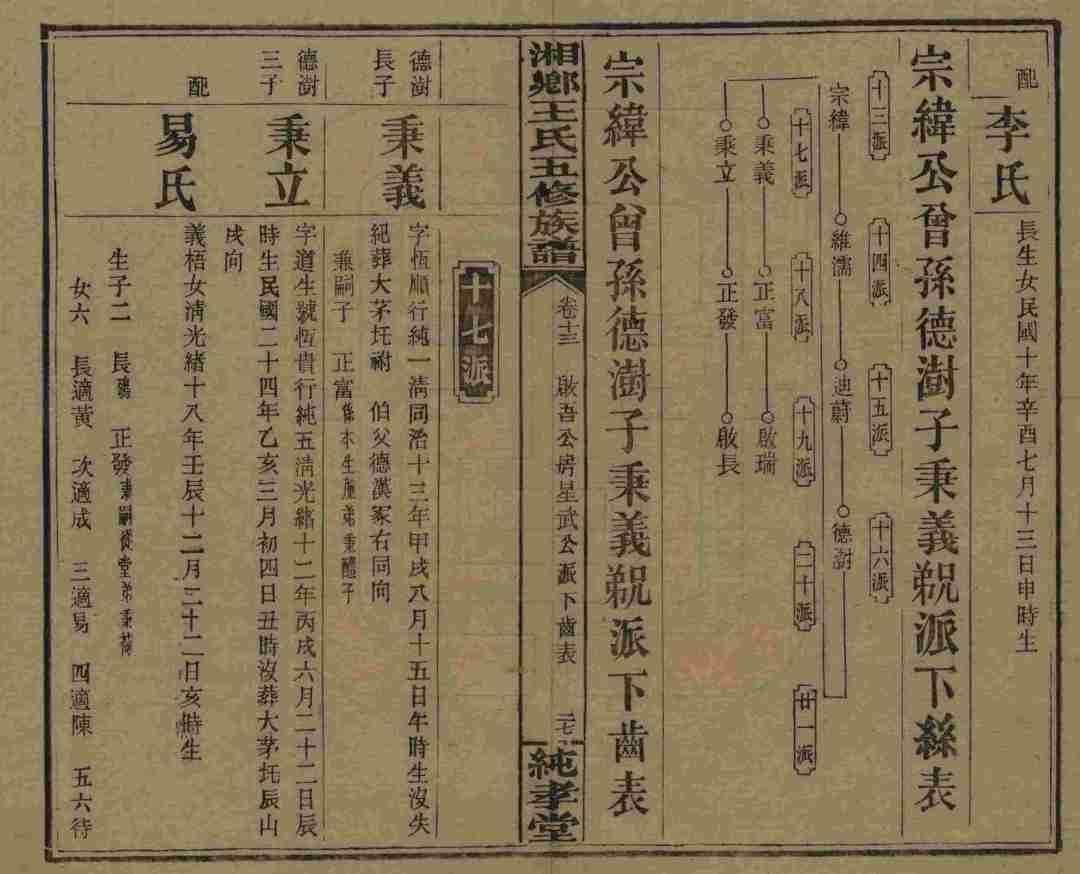 配
李氏
長生女民國十年辛酉七月十三日申時生
宗緯公曾孫德澍子秉義祝派下絲表
十三派
十四派
十五派
十六派
宗緯
維濡
迪蔚
德澍
十七派
十八派
十九派
二十派
廿一派
秉義
正富
啟瑞
秉立
正發
啟長
宗緯公曾孫德澍子秉義祝派下齒表
湘鄉王氏五修族譜
卷十三
啟吾公房星武公派下齒表
二七
純孝堂
十七派
德澍
長子
秉義
字恆順行純一清同治十三年甲戌八月十五日午時生沒失
紀葬大茅圫祔 伯父德漢冢右同向
兼嗣子 正富係本生胞弟秉醴子
德澍
三子
秉立
字道生號恆貴行純五清光緒十二年丙戌六月二十二日辰
時生民國二十四年乙亥三月初四日丑時沒葬大茅圫辰山
戌向
配
易氏
義梧女清光緒十八年壬辰十二月二十二日亥時生
生子二 長殤 正發兼嗣從堂弟秉荷
女六 長適黃 次適成 三適易 四適陳 五六待